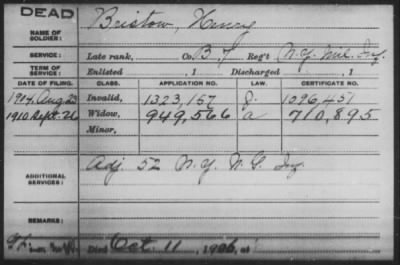 DEAD
NAME OF SOLDIER: Bristow, Henry
SERVICE: Late rank, Co. B. 7 Reg't N.Y. Mil. Inf.
TERM OF SERVICE: Enlisted , 1 Discharged , 1
DATE OF FILING. CLASS. APPLICATION NO. LAW. CERTIFICATE NO.
Aug 23 Invalid, 1323,157 1096,451
1910 Sept. 26 Widow, 949,566 a 710,895
Minor,
ADDITIONAL SERVICES: Adj. 52 N.Y. N.G. Inf.
REMARKS:
Died Oct 11, 1906, at